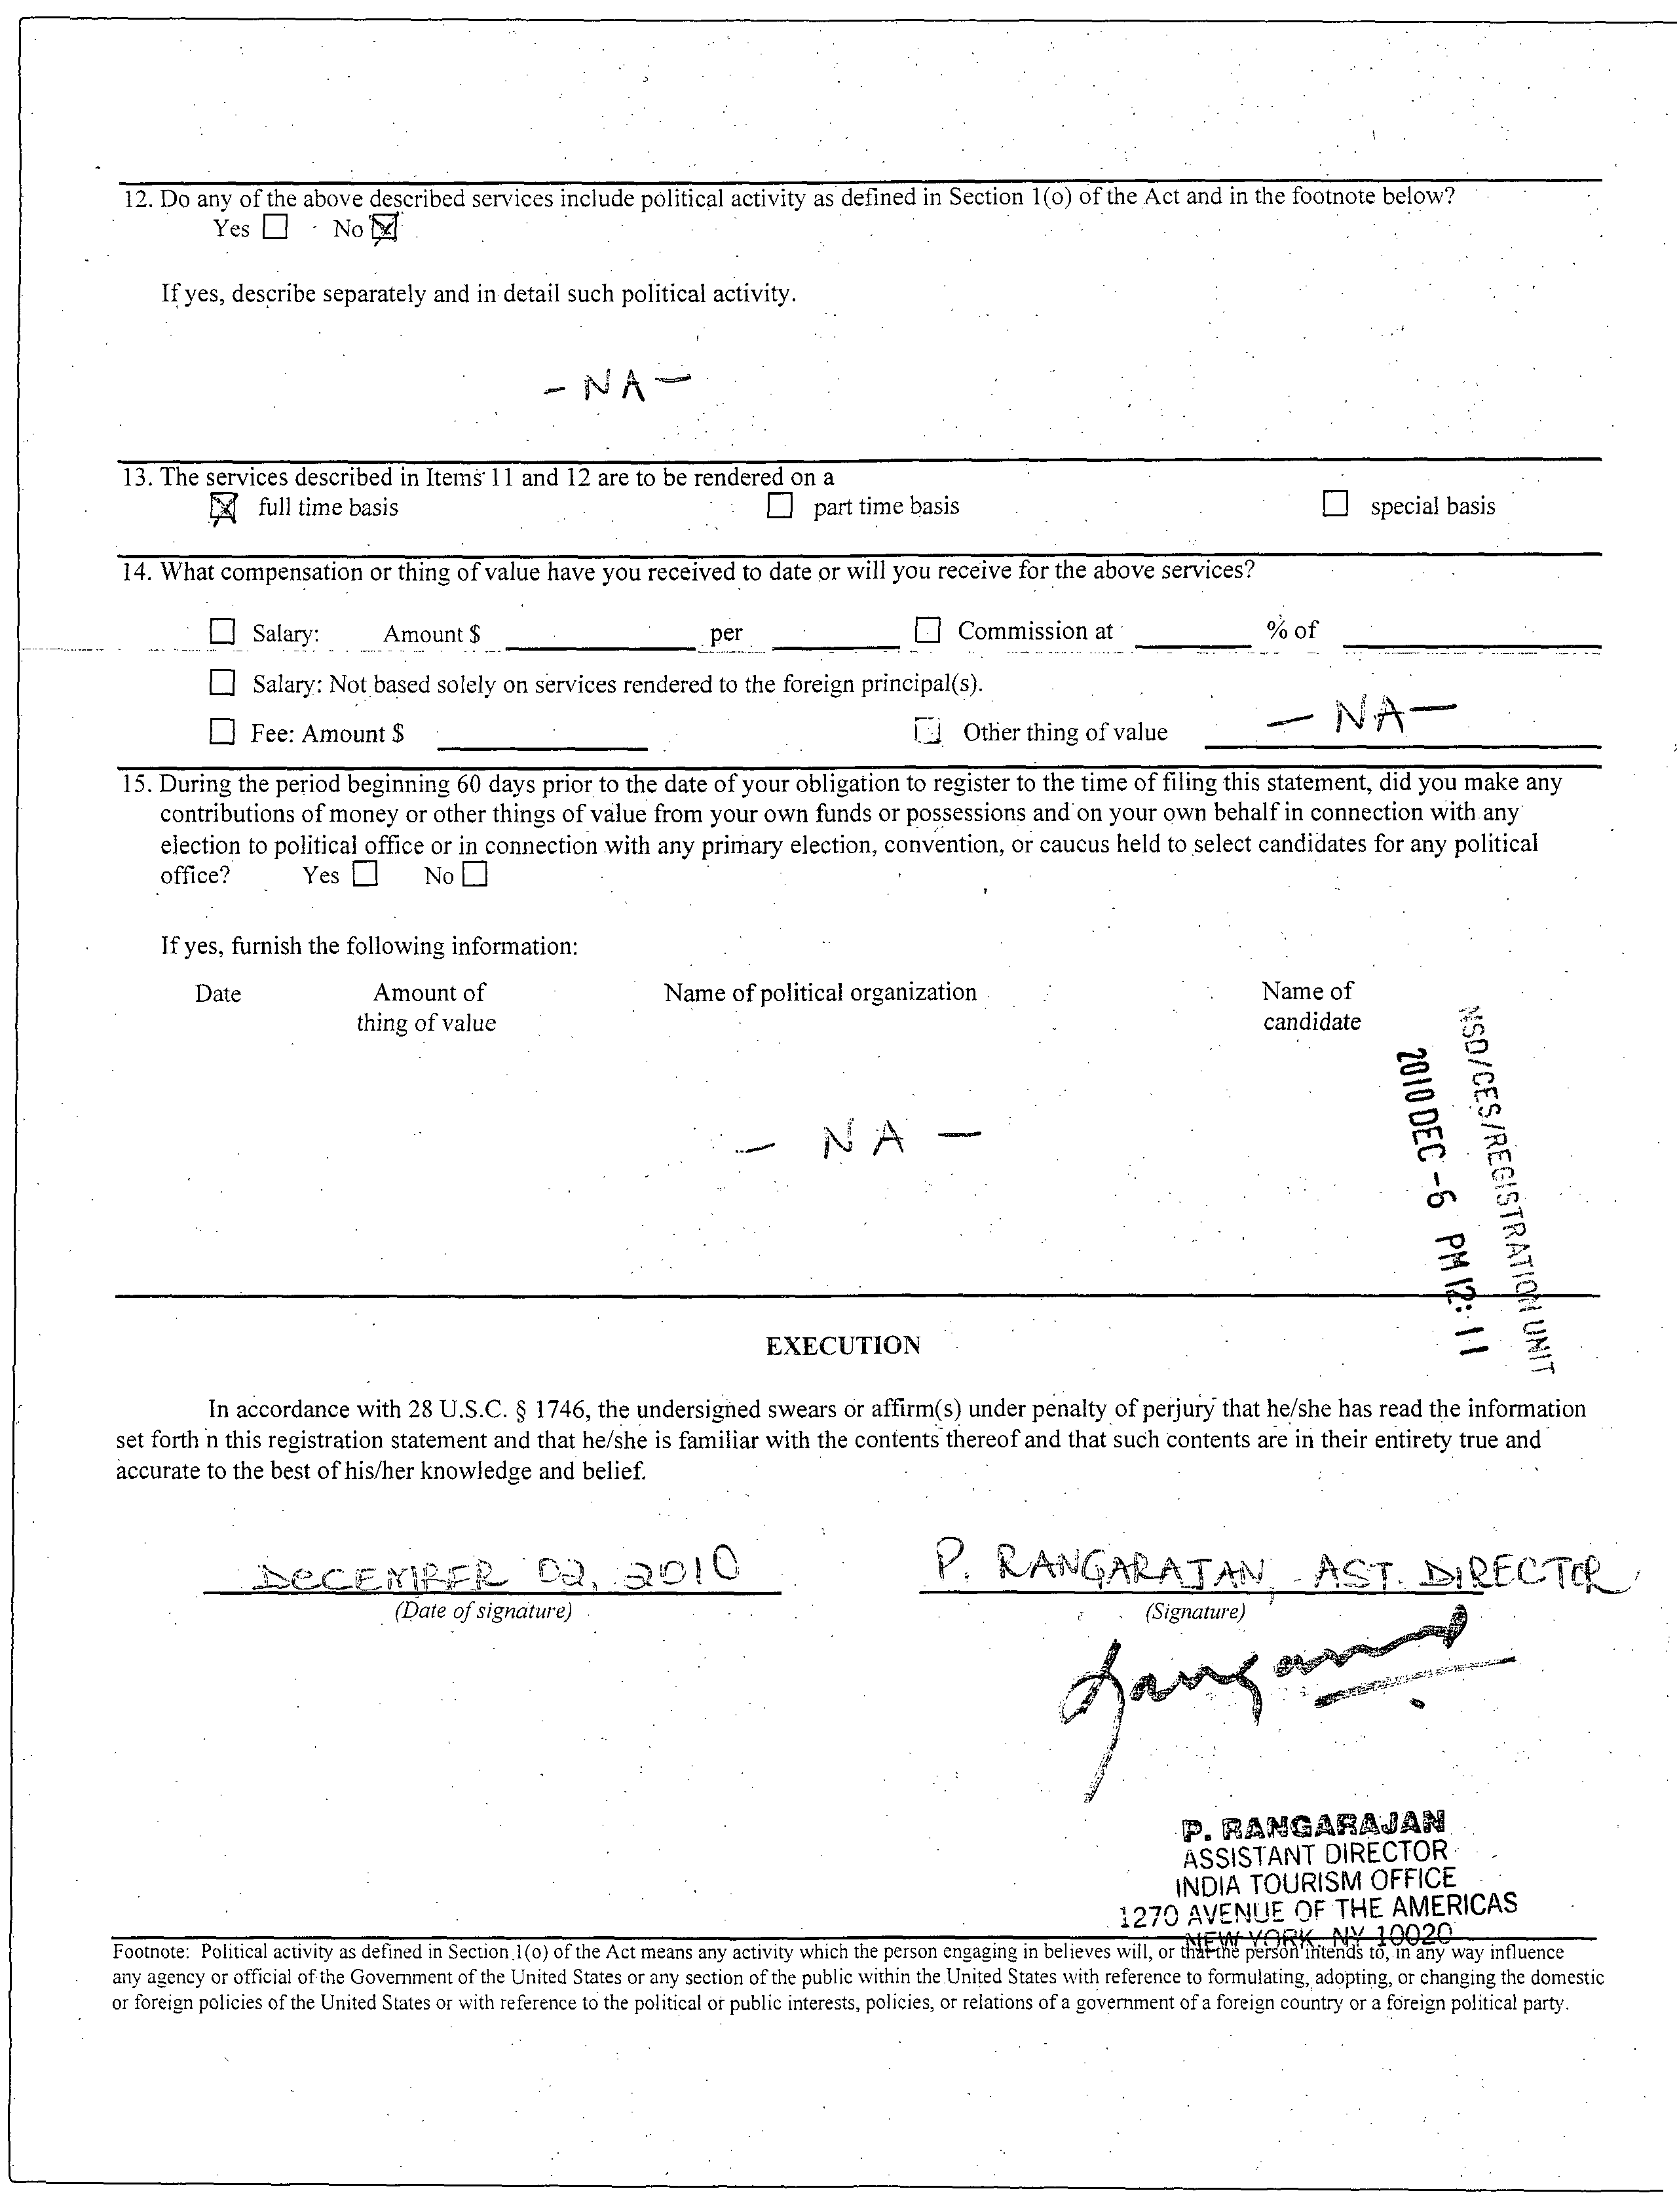 12. Do any of the above described services include political activity as defined in Section 1(o) of the Act and in the footnote below?
Yes ☐ No ☒
If yes, describe separately and in detail such political activity.
- NA -
13. The services described in Items 11 and 12 are to be rendered on a
☒ full time basis ☐ part time basis ☐ special basis
14. What compensation or thing of value have you received to date or will you receive for the above services?
☐ Salary: Amount $ ____ per ____ ☐ Commission at ____ % of ____
☐ Salary: Not based solely on services rendered to the foreign principal(s).
☐ Fee: Amount $ ____ ☐ Other thing of value - NA -
15. During the period beginning 60 days prior to the date of your obligation to register to the time of filing this statement, did you make any
contributions of money or other things of value from your own funds or possessions and on your own behalf in connection with any
election to political office or in connection with any primary election, convention, or caucus held to select candidates for any political
office? Yes ☐ No ☐
If yes, furnish the following information:
Date Amount of Name of political organization Name of
thing of value candidate
- NA -
NSD/CES/REGISTRATION UNIT
2010 DEC -6 PM 12: 11
EXECUTION
In accordance with 28 U.S.C. § 1746, the undersigned swears or affirm(s) under penalty of perjury that he/she has read the information
set forth n this registration statement and that he/she is familiar with the contents thereof and that such contents are in their entirety true and
accurate to the best of his/her knowledge and belief.
DECEMBER 02, 2010 P. RANGARAJAN, AST. DIRECTOR
(Date of signature) (Signature)
P. RANGARAJAN
ASSISTANT DIRECTOR
INDIA TOURISM OFFICE
1270 AVENUE OF THE AMERICAS
NEW YORK, NY 10020
Footnote: Political activity as defined in Section 1(o) of the Act means any activity which the person engaging in believes will, or that the person intends to, in any way influence
any agency or official of the Government of the United States or any section of the public within the United States with reference to formulating, adopting, or changing the domestic
or foreign policies of the United States or with reference to the political or public interests, policies, or relations of a government of a foreign country or a foreign political party.